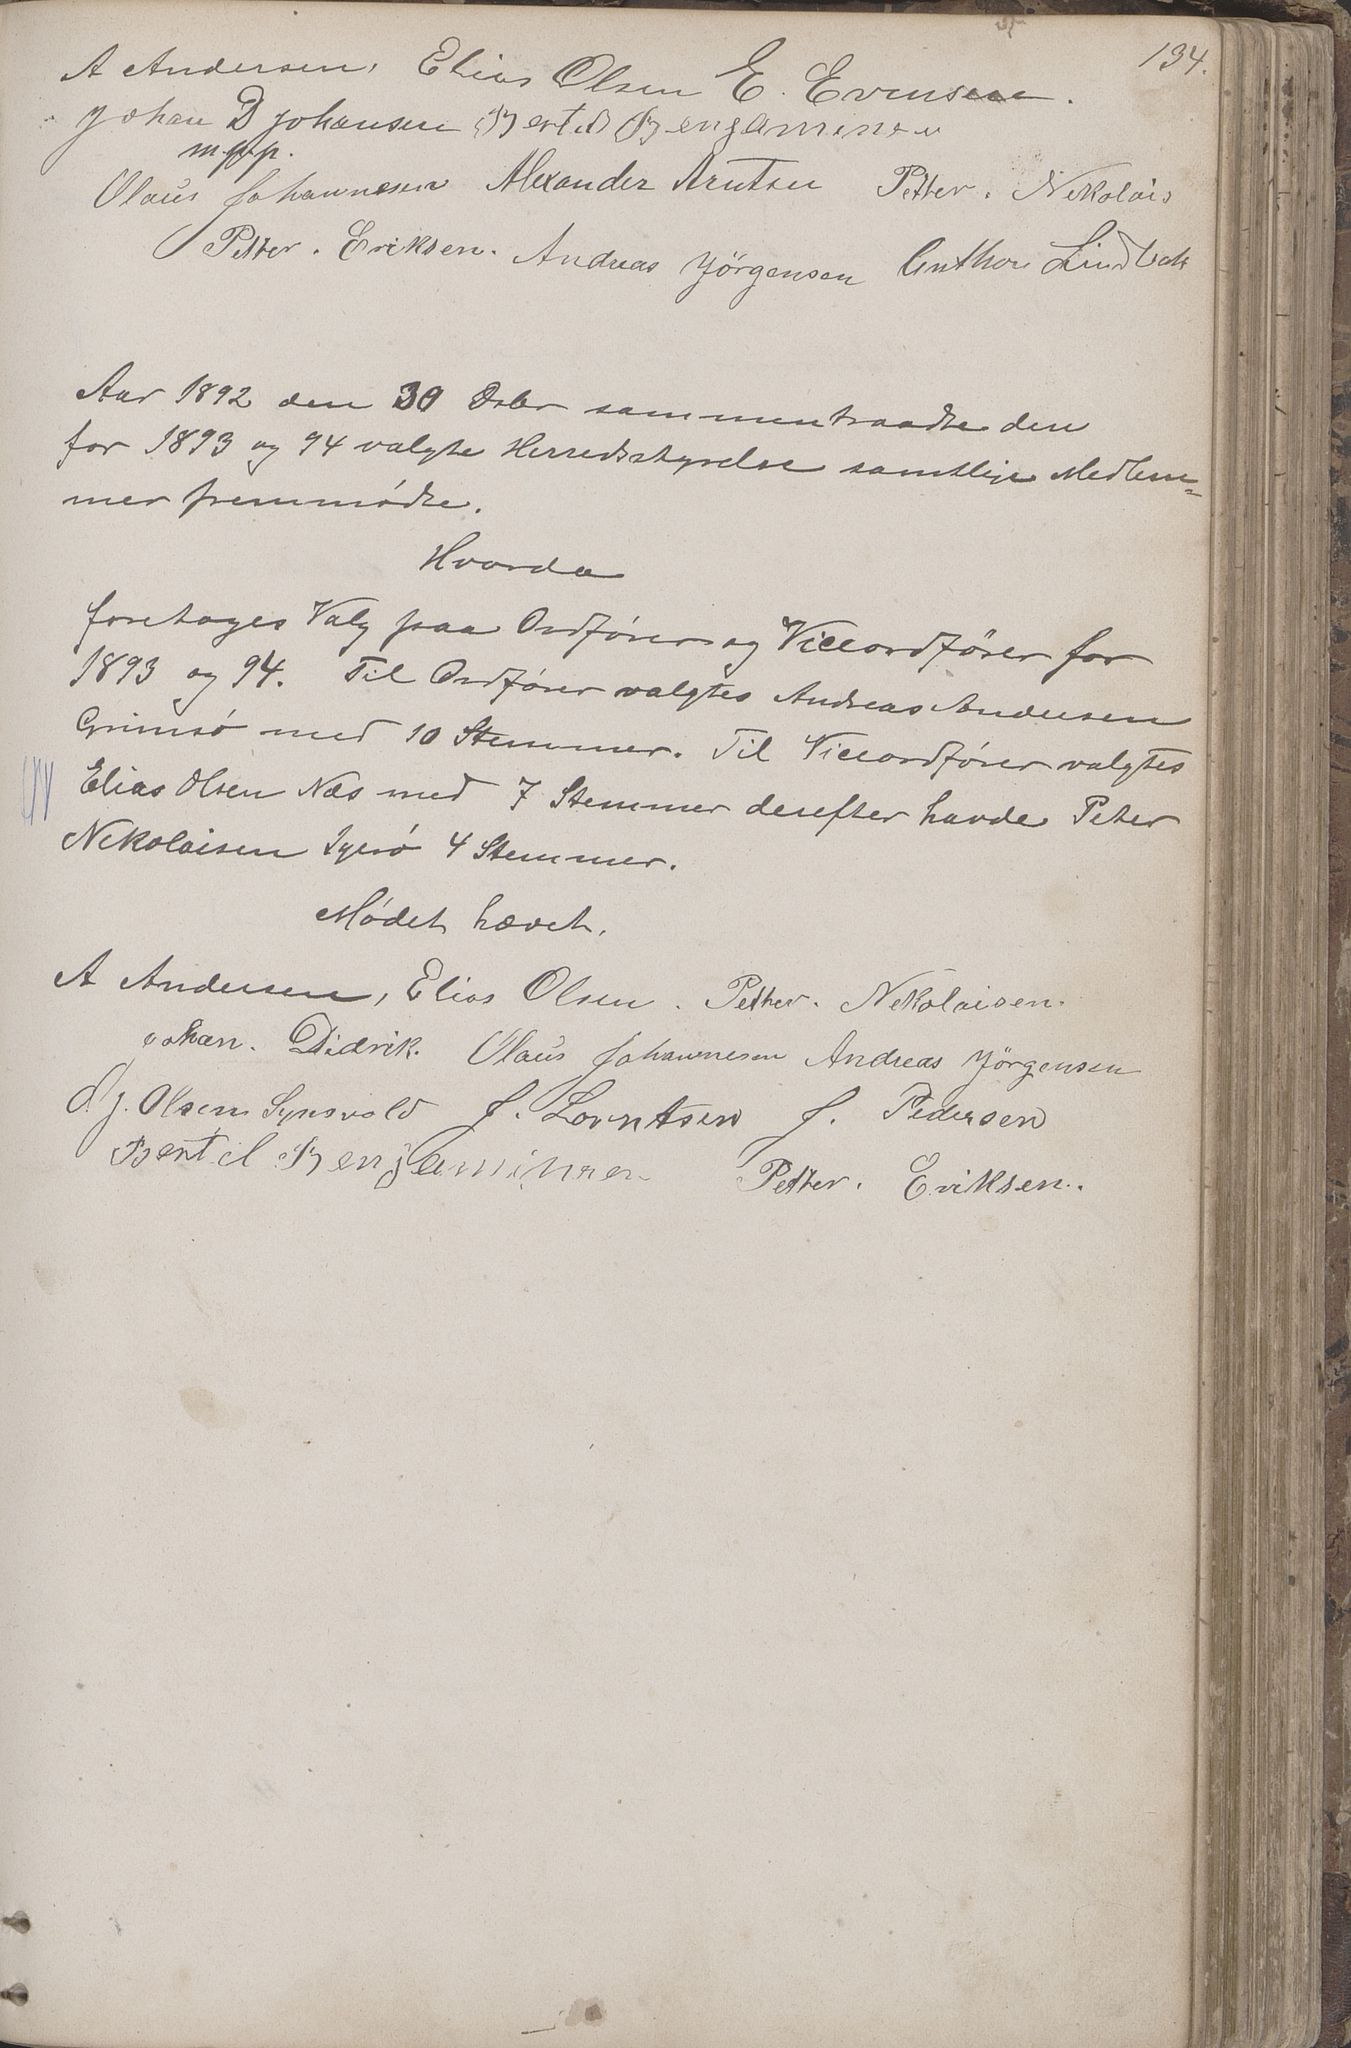 134.
A Andersen, Elias Olsen E. Evensen.
Johan D Johansen Bertel Bengaminsen
m.p.p.
Olaus Johannesen Alexander Arntsen Petter. Nekolais
Petter. Eriksen. Andreas Jörgensen Anthon Lindbak
Aar 1892 den 30 Dsbr sammentraadte den
for 1893 og 94 valgte Herredsstyrelse samtlige Medlem=
mer fremmødte.
Hvorda
foretoges Valg paa Ordfører og Viceordfører for
1893 og 94. Til Ordfører valgtes Andreas Andersen
Grimsø med 10 Stemmer. Til Viceordfører valgtes
Elias Olsen Næs med 7 Stemmer derefter havde Peter
Nekolaisen 4 Stemmer.
Mødet hævet.
A Andersen, Elias Olsen. Petter. Nekolaisen.
Johan. Didrik. Olaus Johannesen Andreas Jörgensen
J. Olsen Synsvold J. Lorntsen J. Pedersen
Bertel Bengaminsen Petter. Eriksen.